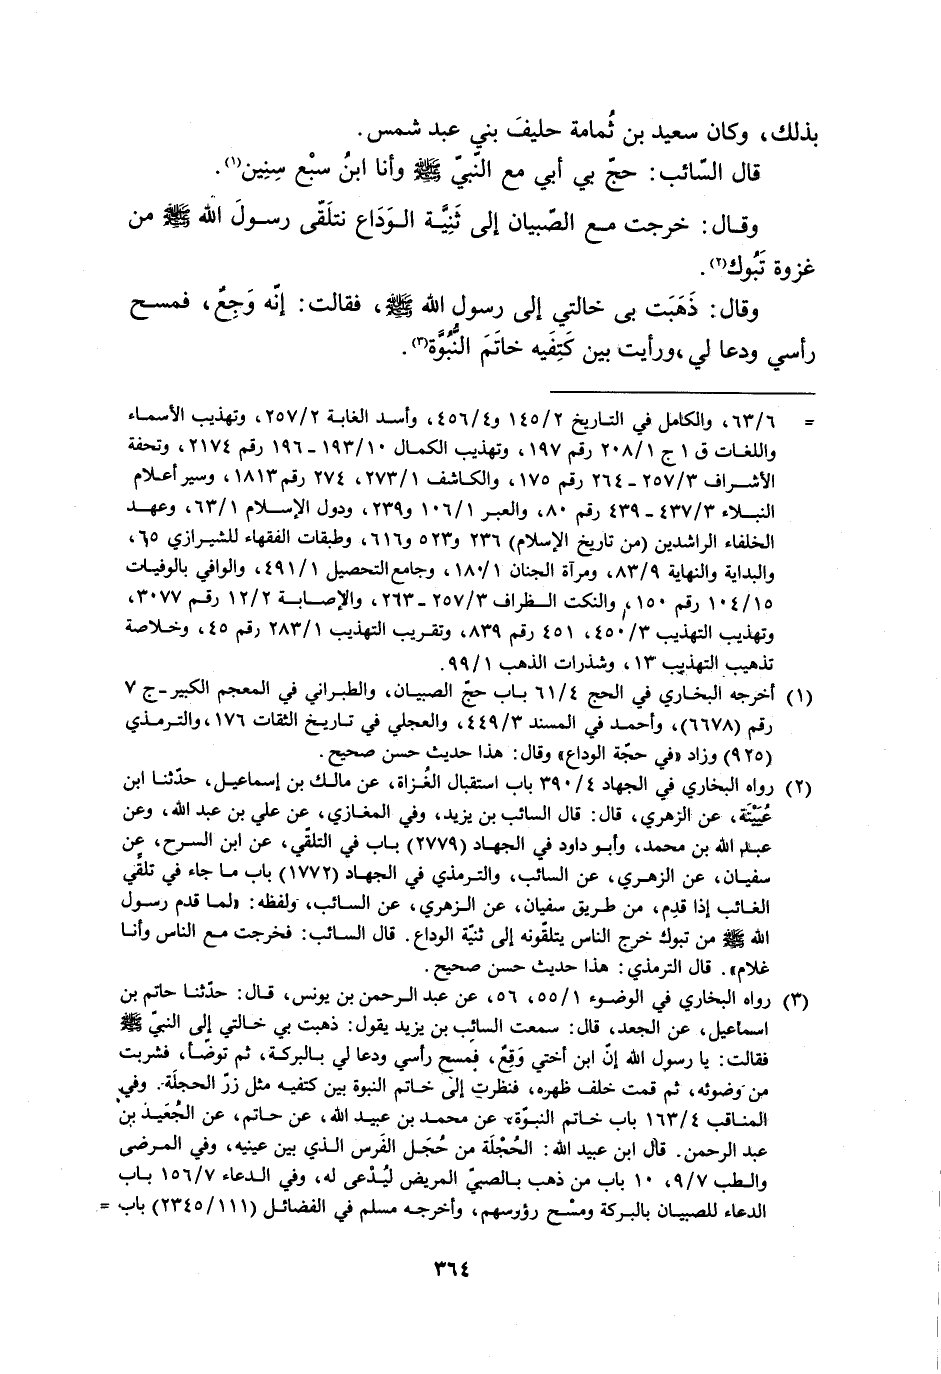 بذلك، وكان سعيد بن ثُمامة حليفَ بني عبد شمس.
قال السّائب: حجّ بي أبي مع النّبيّ ﷺ وأنا ابنُ سبْع سِنِين(١).
وقال: خرجت مع الصّبيان إلى ثَنِيَّة الوَدَاع نتلَقّى رسولَ الله ﷺ من
غزوة تَبُوك(٢).
وقال: ذَهَبَت بى خالتي إلى رسول الله ﷺ، فقالت: إنّه وَجِعٌ، فمسح
رأسي ودعا لي، ورأيت بين كَتِفَيه خاتَمَ النُّبُوَّة(٣).
= ٦٣/٦، والكامل في التاريخ ١٤٥/٢ و٤٥٦/٤، وأسد الغابة ٢٥٧/٢، وتهذيب الأسماء
واللغات ق ١ ج ٢٠٨/١ رقم ١٩٧، وتهذيب الكمال ١٩٣/١٠ ـ ١٩٦ رقم ٢١٧٤، وتحفة
الأشراف ٢٥٧/٣ ـ ٢٦٤ رقم ١٧٥، والكاشف ٢٧٣/١، ٢٧٤ رقم ١٨١٣، وسير أعلام
النبلاء ٤٣٧/٣ ـ ٤٣٩ رقم ٨٠، والعبر ١٠٦/١ و٢٣٩، ودول الإسلام ٦٣/١، وعهد
الخلفاء الراشدين (من تاريخ الإسلام) ٢٣٦ و٥٢٣ و٦١٦، وطبقات الفقهاء للشيرازي ٦٥،
والبداية والنهاية ٨٣/٩، ومرآة الجنان ١٨٠/١، وجامع التحصيل ٤٩١/١، والوافي بالوفيات
١٠٤/١٥ رقم ١٥٠، والنكت الظراف ٢٥٧/٣ ـ ٢٦٣، والإصابة ١٢/٢ رقم ٣٠٧٧،
وتهذيب التهذيب ٤٥٠/٣، ٤٥١ رقم ٨٣٩، وتقريب التهذيب ٢٨٣/١ رقم ٤٥، وخلاصة
تذهيب التهذيب ١٣، وشذرات الذهب ٩٩/١.
(١) أخرجه البخاري في الحج ٦١/٤ باب حجّ الصبيان، والطبراني في المعجم الكبير ـ ج ٧
رقم (٦٦٧٨)، وأحمد في المسند ٤٤٩/٣، والعجلي في تاريخ الثقات ١٧٦، والترمذي
(٩٢٥) وزاد «في حجّة الوداع» وقال: هذا حديث حسن صحيح.
(٢) رواه البخاري في الجهاد ٣٩٠/٤ باب استقبال الغُزاة، عن مالك بن إسماعيل، حدّثنا ابن
عُيَيْنَة، عن الزهري، قال: قال السائب بن يزيد، وفي المغازي، عن علي بن عبد الله، وعن
عبد الله بن محمد، وأبو داود في الجهاد (٢٧٧٩) باب في التلقّي، عن ابن السرح، عن
سفيان، عن الزهري، عن السائب، والترمذي في الجهاد (١٧٧٢) باب ما جاء في تلقّي
الغائب إذا قدِم، من طريق سفيان، عن الزهري، عن السائب، ولفظه: «لما قدم رسول
الله ﷺ من تبوك خرج الناس يتلقّونه إلى ثنيّة الوداع. قال السائب: فخرجت مع الناس وأنا
غلام». قال الترمذي: هذا حديث حسن صحيح.
(٣) رواه البخاري في الوضوء ٥٥/١، ٥٦، عن عبد الرحمن بن يونس، قال: حدّثنا حاتم بن
اسماعيل، عن الجعد، قال: سمعت السائب بن يزيد يقول: ذهبت بي خالتي إلى النبيّ ﷺ
فقالت: يا رسول الله إنّ ابن أختي وَقِعٌ، فمسح رأسي ودعا لي بالبركة، ثم توضّأ، فشربت
من وَضوئه، ثم قمت خلف ظهره، فنظرت إلى خاتم النبوة بين كتفيه مثل زرّ الحجلة. وفي
المناقب ١٦٣/٤ باب خاتم النبوّة، عن محمد بن عبيد الله، عن حاتم، عن الجُعَيد بن
عبد الرحمن. قال ابن عبيد الله: الحُجْلَة من حُجَل الفَرس الذي بين عينيه، وفي المرضى
والطب ٩/٧، ١٠ باب من ذهب بالصبيّ المريض ليُدْعى له، وفي الدعاء ١٥٦/٧ باب
الدعاء للصبيان بالبركة ومسْح رؤرسهم، وأخرجه مسلم في الفضائل (٢٣٤٥/١١١) باب =
٣٦٤